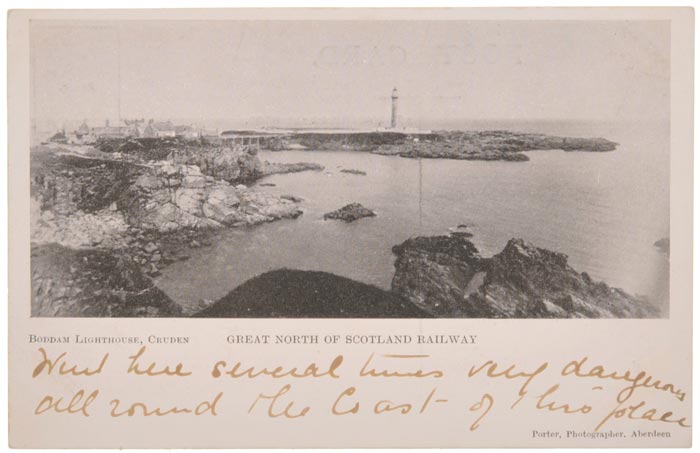 BODDAM LIGHTHOUSE, CRUDEN GREAT NORTH OF SCOTLAND RAILWAY
Went here several times very dangerous
all round the Coast of this place
Porter, Photographer, Aberdeen